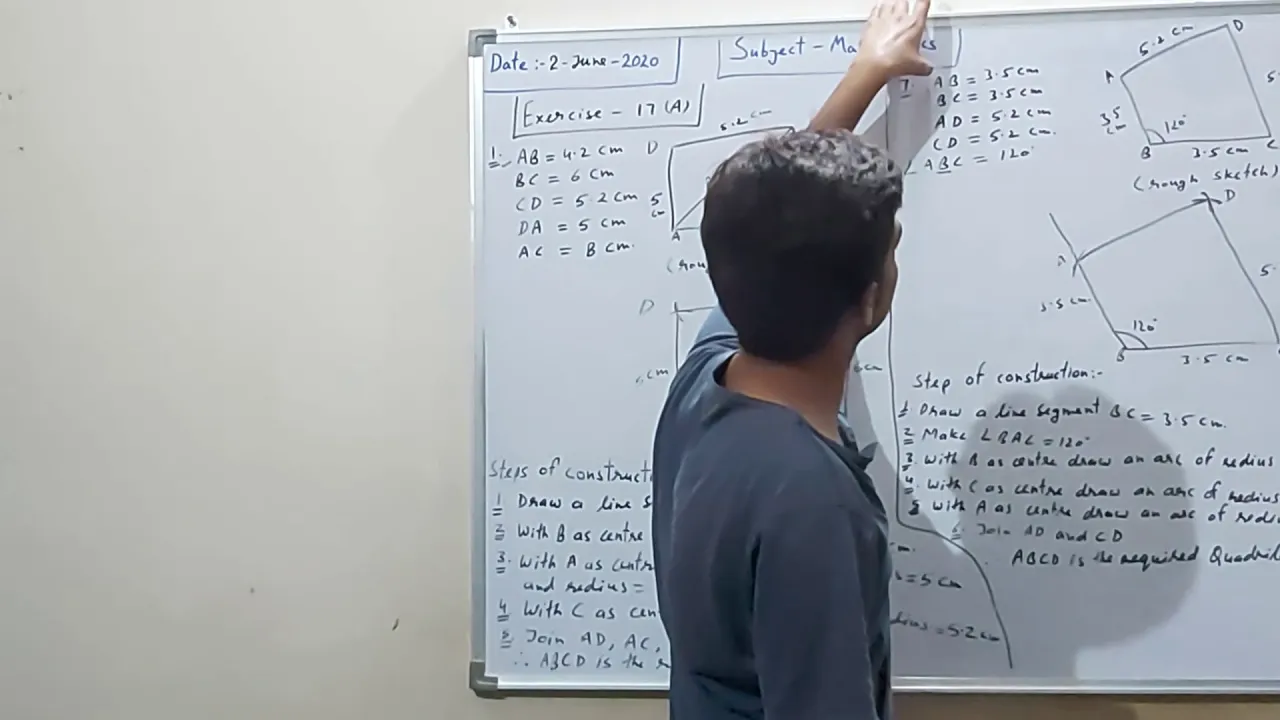 Date :- 2-June-2020
Subject - Ma
Exercise - 17 (A)
1. AB = 4.2 cm
BC = 6 cm
CD = 5.2 cm
DA = 5 cm
AC = 8 cm.
D
5.2 cm
5 cm
A
D
cm
Steps of construct
1 Draw a line s
2 With B as centre
3. With A as centr
and radius =
4 With C as cen
5 Join AD, AC,
∴ ABCD is the r
= 5 cm
dius = 5.2 cm
7. AB = 3.5 cm
BC = 3.5 cm
AD = 5.2 cm
CD = 5.2 cm.
ABC = 120°
5.2 cm
D
A
3.5 cm
120°
B
3.5 cm
C
(rough sketch)
D
A
3.5 cm
120°
B
3.5 cm
Step of construction:-
1 Draw a line segment BC = 3.5 cm.
2 Make ∠BAC = 120°
3. With B as centre draw an arc of radius
4. With C as centre draw an arc of radius
5 With A as centre draw an arc of radi
6. Join AD and CD
∴ ABCD is the required Quadril